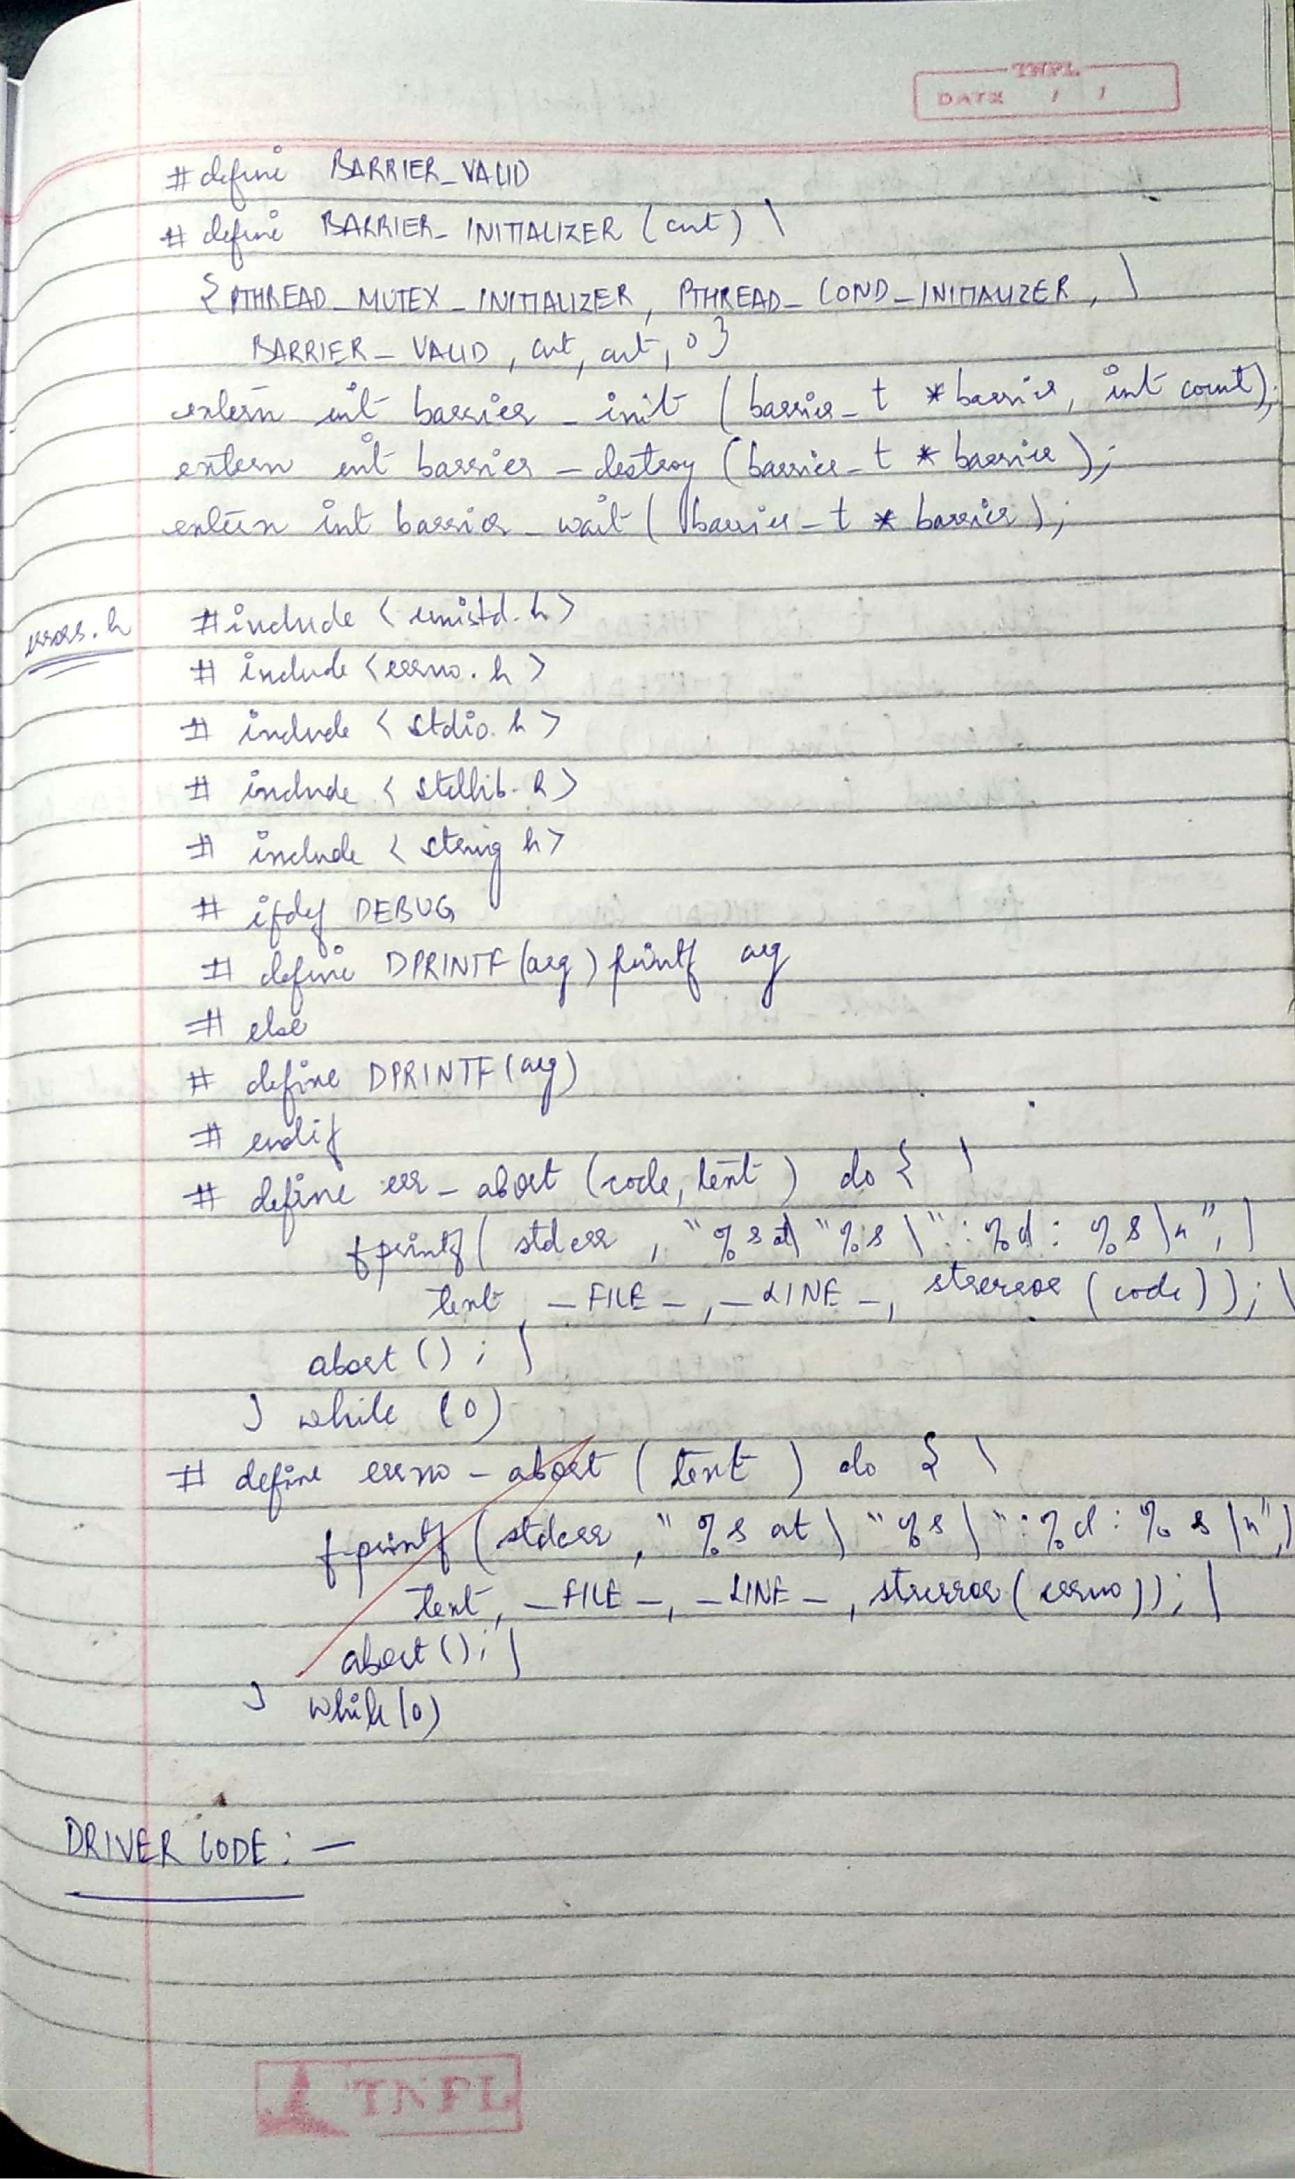 TNPL
DATE / /
# define BARRIER_VALID
# define BARRIER_INITIALIZER (cnt) \
{ PTHREAD_MUTEX_INITIALIZER, PTHREAD_COND_INITIALIZER, \
BARRIER_VALID, cnt, cnt, 0 }
extern int barrier_init (barrier_t *barrier, int count);
extern int barrier_destroy (barrier_t *barrier);
extern int barrier_wait (barrier_t *barrier);
errors.h
#include <unistd.h>
# include <errno.h>
# include <stdio.h>
# include <stdlib.h>
# include <string h>
# ifdef DEBUG
# define DPRINTF (arg) printf arg
# else
# define DPRINTF (arg)
# endif
# define err_abort (code, text) do { \
fprintf( stderr, "%s at\ "%s \": %d: %s \n", \
text, _FILE_, _LINE_, strerror (code)); \
abort (); \
} while (0)
# define errno_abort (text) do { \
fprintf (stderr, "%s at\ "%s \": %d: %s \n", \
text, _FILE_, _LINE_, strerror (errno)); \
abort (); \
} while (0)
DRIVER CODE: —
TNPL